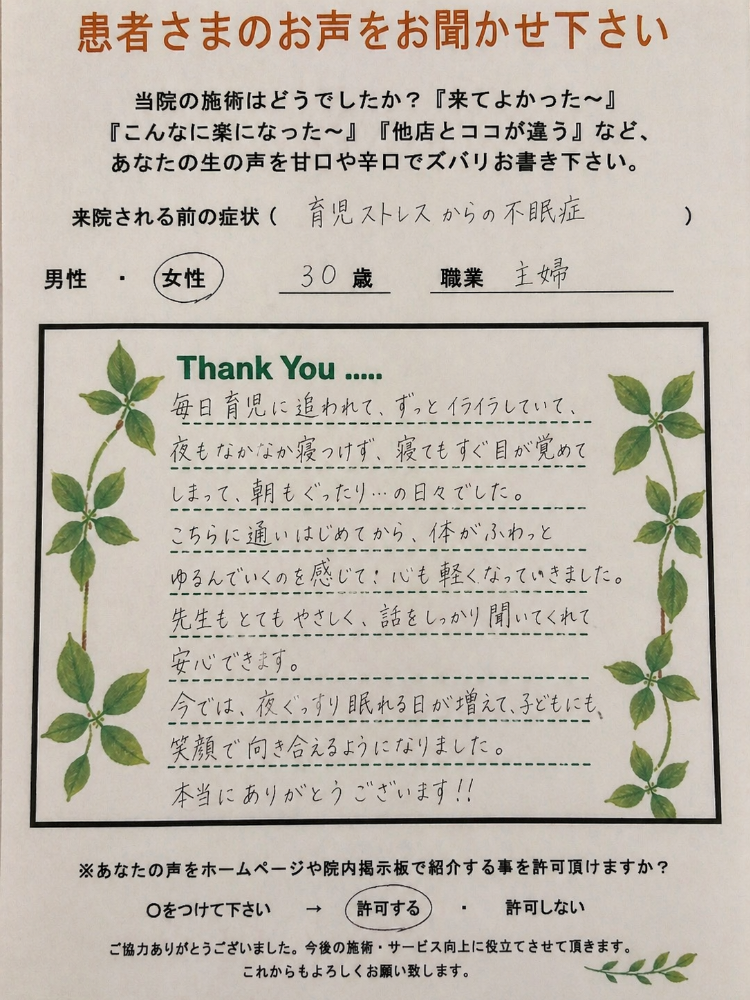 患者さまのお声をお聞かせ下さい
当院の施術はどうでしたか？『来てよかった〜』
『こんなに楽になった〜』『他店とココが違う』など、
あなたの生の声を甘口や辛口でズバリお書き下さい。
来院される前の症状（ 育児ストレスからの不眠症 ）
男性 ・ 女性 30歳 職業 主婦
Thank You .....
毎日育児に追われて、ずっとイライラしていて、
夜もなかなか寝つけず、寝てもすぐ目が覚めて
しまって、朝もぐったり…の日々でした。
こちらに通いはじめてから、体がふわっと
ゆるんでいくのを感じて！心も軽くなっていきました。
先生もとてもやさしく、話をしっかり聞いてくれて
安心できます。
今では、夜ぐっすり眠れる日が増えて、子どもにも、
笑顔で向き合えるようになりました。
本当にありがとうございます!!
※あなたの声をホームページや院内掲示板で紹介する事を許可頂けますか？
〇をつけて下さい → 許可する ・ 許可しない
ご協力ありがとうございました。今後の施術・サービス向上に役立てさせて頂きます。
これからもよろしくお願い致します。